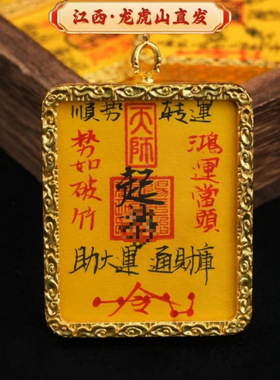 江西·龙虎山直发
順势 转運
天师
鴻運當頭
起
势如破竹
助大運 通財庫